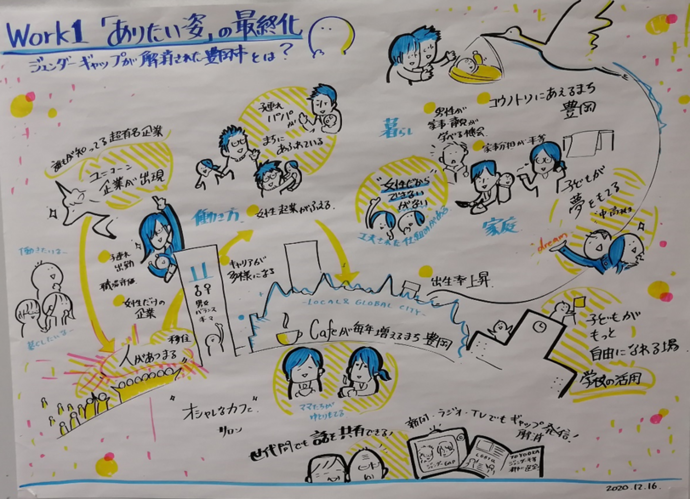 Work1「ありたい姿」の最終化
ジェンダーギャップが解消された豊岡市とは？
誰もが知ってる超有名企業
ユニコーン
企業が出現
子連れ
パパが
まちに
あふれている
暮らし
男性が
家事・育児が
学べる機会
コウノトリにあえるまち
豊岡
家事分担が平等
子どもが
夢をもてる
dream
家庭
"女性だから
できない
がない
働き方
女性起業がふえる
子連れ
出勤
女性だけの
企業
男女
バランス
キャリアが
多様になる
出生率上昇
LOCAL & GLOBAL CITY
Cafeが毎年増えるまち豊岡
働きたいな…
暮したいな…
人があつまる
移住
"オシャレなカフェ"
サロン
ママたちが
ゆとりもてる
世代間でも話を共有できる！
新聞・ラジオ・TVでもギャップ
解消
発信！
子どもが
もっと
自由になれる場
学校の活用
TOYOOKA
2020.12.16.